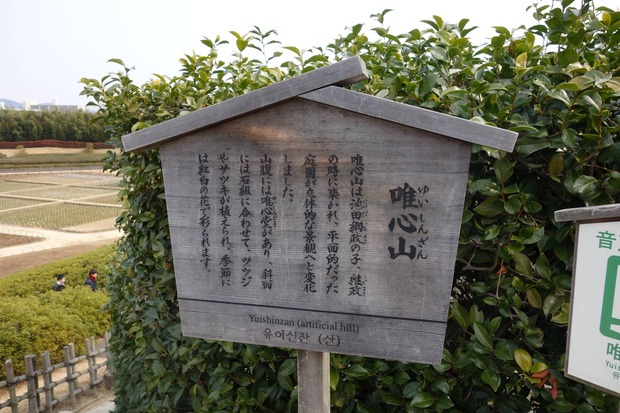 唯心山
ゆいしんざん
唯心山は池田綱政の子、継政
の時に築かれ、平面的だった
庭園が立体的な景観へと変化
しました。
山腹には唯心堂があり、斜面
には石組に合わせて、ツツジ
やサツキが植えられ、季節に
は紅白の花で彩られます。
Yuishinzan (artificial hill)
유이신잔 (산)
音
唯
Yuis
유